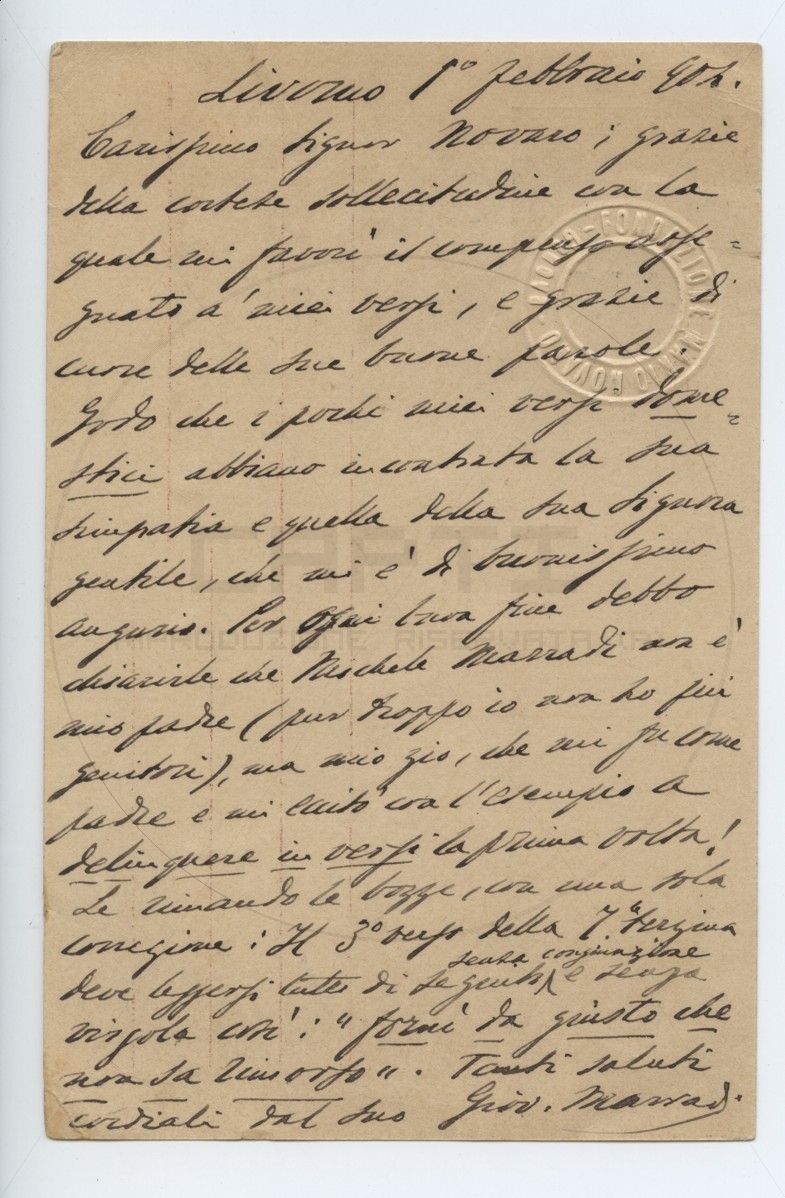 Livorno 1º febbraio 902.
Carissimo Signor Novaro; grazie
della cortese sollecitudine con la
quale mi favorì il compenso asse=
gnato a' miei versi, e grazie di
cuore delle sue buone parole.
Godo che i pochi miei versi dome=
stici abbiano incontrata la sua
simpatia e quella della sua Signora
gentile, che mi è di buonissimo
augurio. Per ogni buon fine debbo
chiarirle che Michele Marradi non è
mio padre (pur troppo io non ho più
genitori), ma mio zio, che mi fu come
padre e mi eccitò con l'esempio a
delinquere in versi la prima volta!
Le rimando le bozze, con una sola
correzione: Il 3º verso della 7ª terzina
senza congiunzione
deve leggersi tutto di seguito e senza
virgola così: "dormì da giusto che
non sa rimorso". Tanti saluti
cordiali dal suo Giov. Marradi.
FONDAZIONE MARIO NOVARO
RIPRODUZIONE RISERVATA